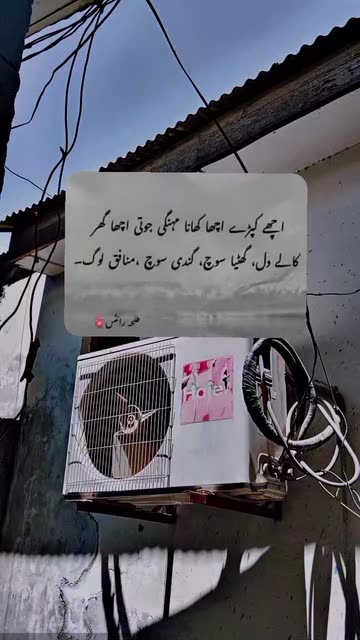 اچھے کپڑے اچھا کھانا مہنگی جوتی اچھا گھر
کالے دل، گھٹیا سوچ، گندی سوچ ،منافق لوگ۔
طلحہ رائٹس
Hotel